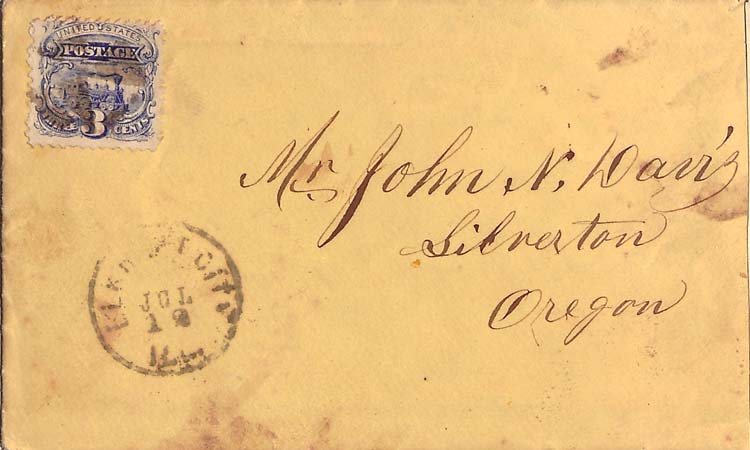 UNITED STATES
POSTAGE
THREE 3 CENTS
Mr. John N. Davis
Silverton
Oregon
CITY
JUL
12
ILL.